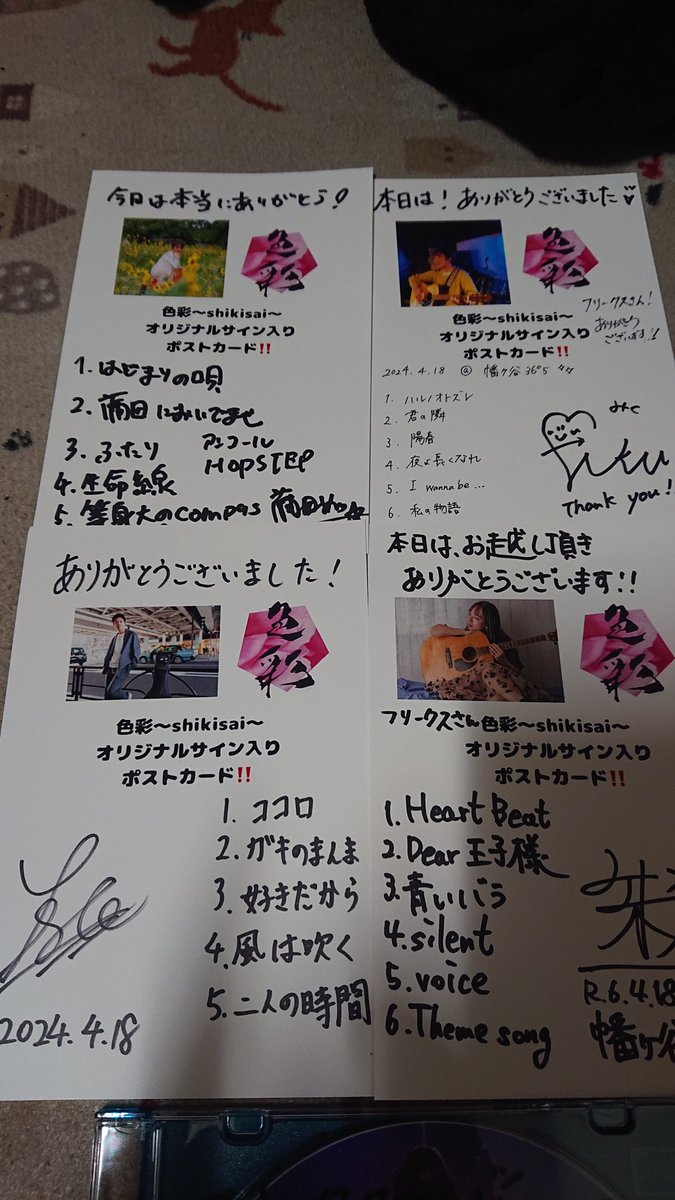 今日は本当にありがとう!
色彩
色彩~shikisai~
オリジナルサイン入り
ポストカード‼
1. はじまりの唄
2. 蒲田においでませ
3. ふたり
アンコール
HOPSTEP
4. 生命線
5. 等身大のcompas
本日は!ありがとうございました
色彩
色彩~shikisai~
オリジナルサイン入り
ポストカード‼
フリークスさん!
ありがとう
ございます!!
2024. 4. 18 @ 幡ヶ谷 36°5
1. ハルノオトズレ
2. 君の隣
3. 陽春
4. 夜よ長くなれ
5. I wanna be...
6. 私の物語
Thank you!
ありがとうございました!
色彩
色彩~shikisai~
オリジナルサイン入り
ポストカード‼
1. ココロ
2. ガキのまんま
3. 好きだから
4. 風は吹く
5. 二人の時間
2024. 4. 18
本日は、お越し頂き
ありがとうございます!!
色彩
フリークスさん
色彩~shikisai~
オリジナルサイン入り
ポストカード‼
1. Heart Beat
2. Dear 王子様
3. 青いバラ
4. silent
5. voice
6. Theme song
R.6.4.18
幡ヶ谷